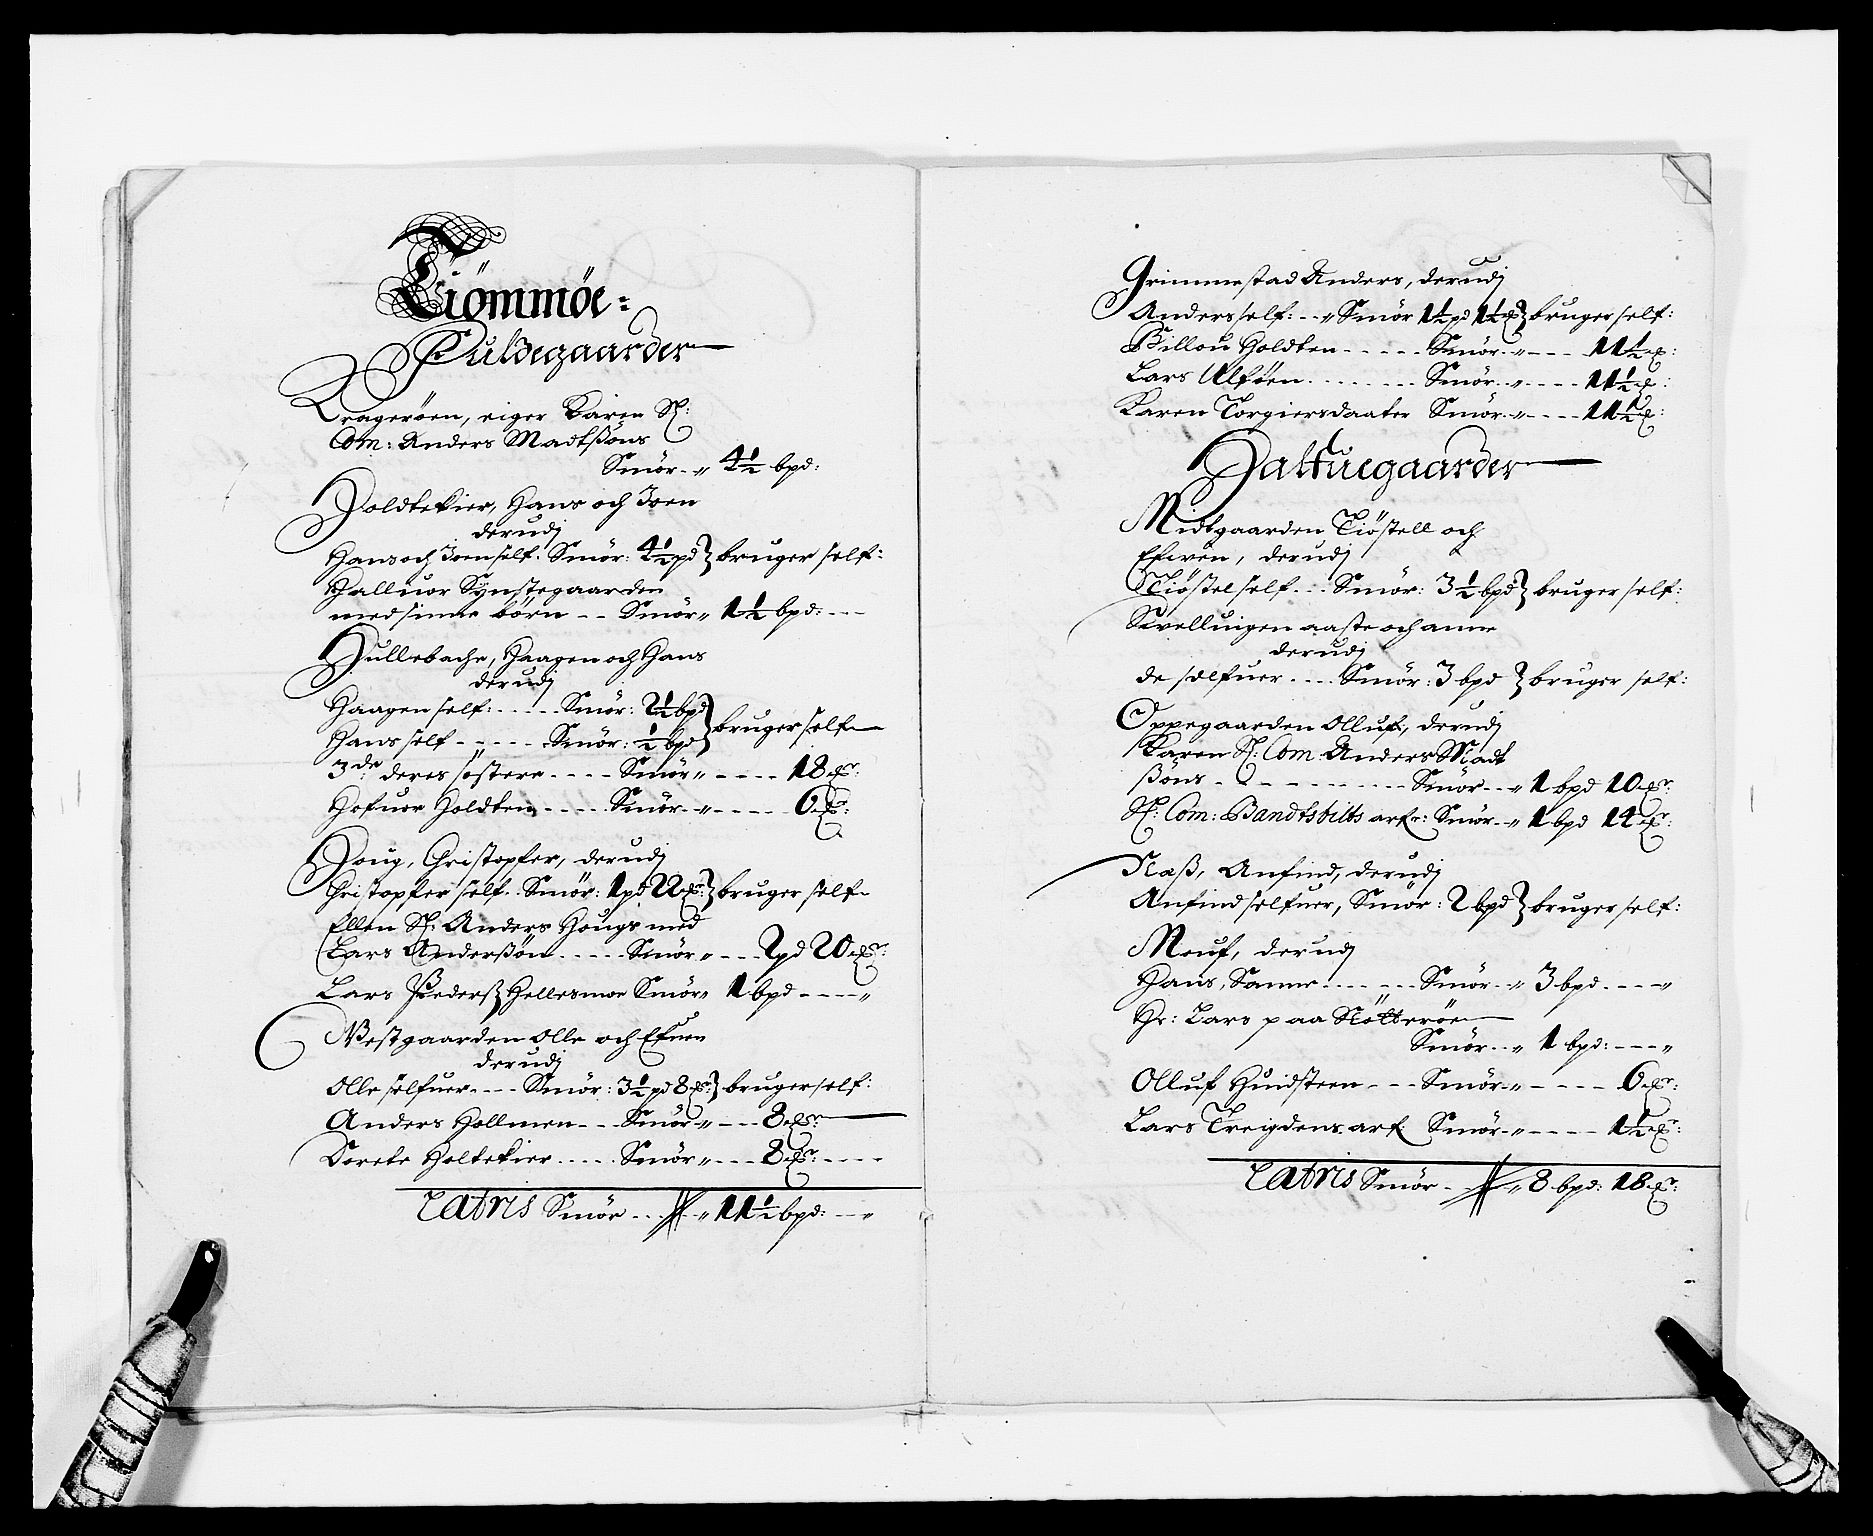 Tiömmöe:
Fuldegaarder
Kragerøen, eiger Karen Sl:
Com: Anders Madtßöns
Smör - „ 4½ bpd:
Holdtekier, Hans och Joen
derudj
Hans och Joen self. Smör: 4½ pd } bruger self:
Halluor Synstegaarden
med sinne börn -- Smör „ 1½ bpd: ---
Hullebache, Haagen och Hans
derudj
Haagen self: ----- Smör: 2½ bpd } bruger self
Hans self ----- Smör: ½ bpd
3de deres söstere ---- Smör „ ---- 18 
Hofuor Holdten ---- Smör - „ ---- 6 
Houg, Christopfer, derudj
Christopfer self. Smör: 1 pd 22 } bruger self
Ellen Sl: Anders Hougs med
Lars Anderßön ----- Smör „ --- 2 pd 20 
Lars Pederß Hellesmoe Smör „ 1 bpd ---- „
Westgaarden Olle och Efuen
derudj
Olle selfuer --- Smör: 3½ pd 8 } bruger self:
Anders Hollmen --- Smör „ --- 8 
Dorete Holtekier ----- Smör „ --- 8 
Latris Smör --- „ 11½ bpd: -- „
Grimmestad Anders, derudj
Anders self: -- „ Smör 1½ pd 1½ } bruger self:
Billou Holdten ----- Smör - „ --- 11½
Lars Ulföen -------- Smör - „ ---- 11½
Karen Torgiersdaater Smör - „ ---- 11½
Halfuegaarder
Midtgaarden Tiöstell och
Efwen, derudj
Tiöstel self --- Smör: 3½ bpd } bruger self:
Swellingen aaste och anne
derudj
de selfuer ---- Smör: 3 bpd } bruger self:
Oppegaarden Olluf, derudj
Karen Sl: Com: Anders Madt
ßöns ----------- Smör -- „ 1 bpd 10 
Sl: Com: Bandtsbills arf: Smör - „ 1 bpd 14 
Næß, Anfind, derudj
Anfind selfuer, Smör: 2 bpd } bruger self:
Mouf, derudj
Hans, Sanne ------ Smör - „ 3 bpd ---- „
Hr: Lars paa Nötteröe
Smör - „ 1 bpd: ---- „
Olluf Huidsteen --- Smör - „ ---- 6 
Lars Treigdens arf: Smör - „ ---- 1½
Latris Smör -- „ 8 bpd: 18